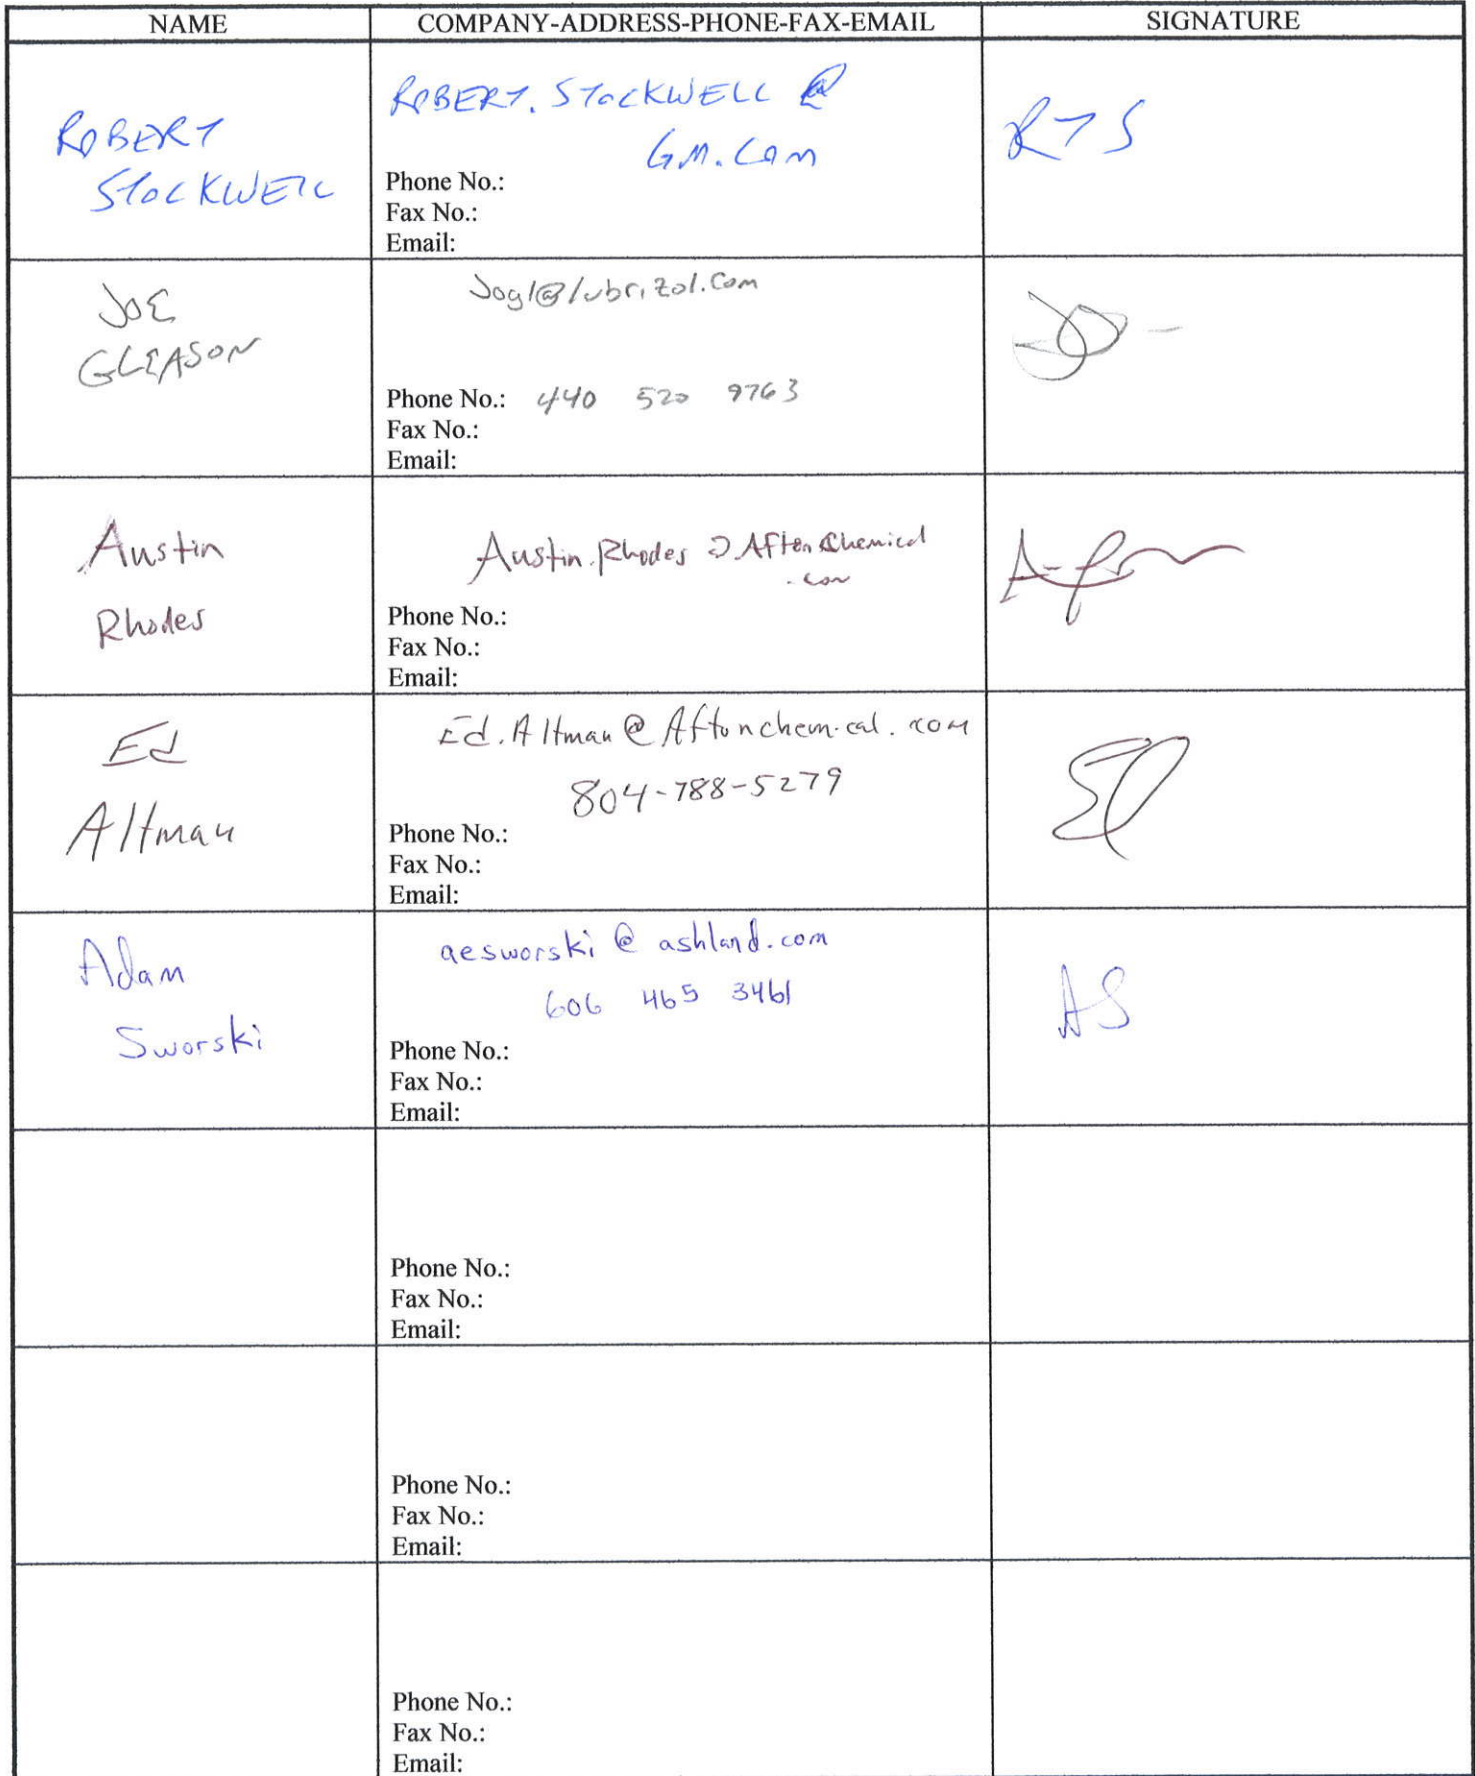 NAME
COMPANY-ADDRESS-PHONE-FAX-EMAIL
SIGNATURE
ROBERT
STOCKWELL
ROBERT. STOCKWELL @
GM.COM
Phone No.:
Fax No.:
Email:
RTS
JOE
GLEASON
Jogl@lubrizol.com
Phone No.: 440 520 9763
Fax No.:
Email:
Austin
Rhodes
Austin.Rhodes @ AftonChemical
.com
Phone No.:
Fax No.:
Email:
Ed
Altman
Ed.Altman@Aftonchemical.com
804-788-5279
Phone No.:
Fax No.:
Email:
Adam
Sworski
aesworski@ashland.com
606 465 3461
Phone No.:
Fax No.:
Email:
AS
Phone No.:
Fax No.:
Email:
Phone No.:
Fax No.:
Email:
Phone No.:
Fax No.:
Email: